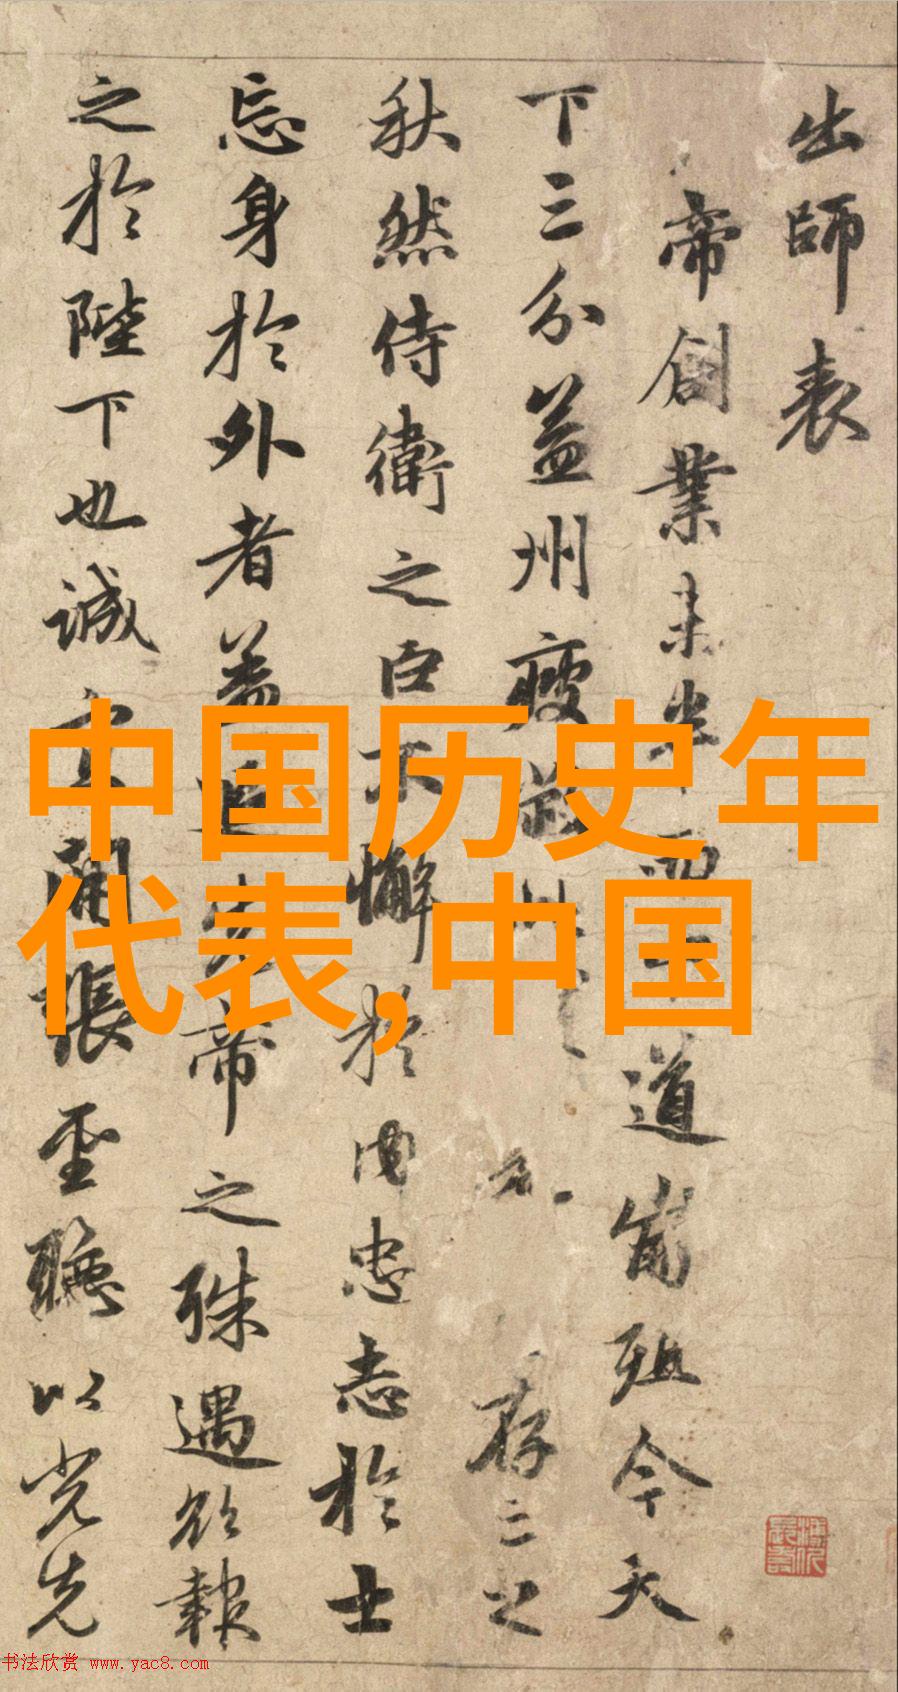 出師表
帝創業未半道崩殂今天
下三分益州疲存亡之
秋然侍衛之臣不懈於内忠志於士
忘身於外者蓋追先帝之殊遇欲報
之於陛下也誠宜開張聖聽以光先
中国历史年
代表,中国
书法欣赏 www.yac8.com